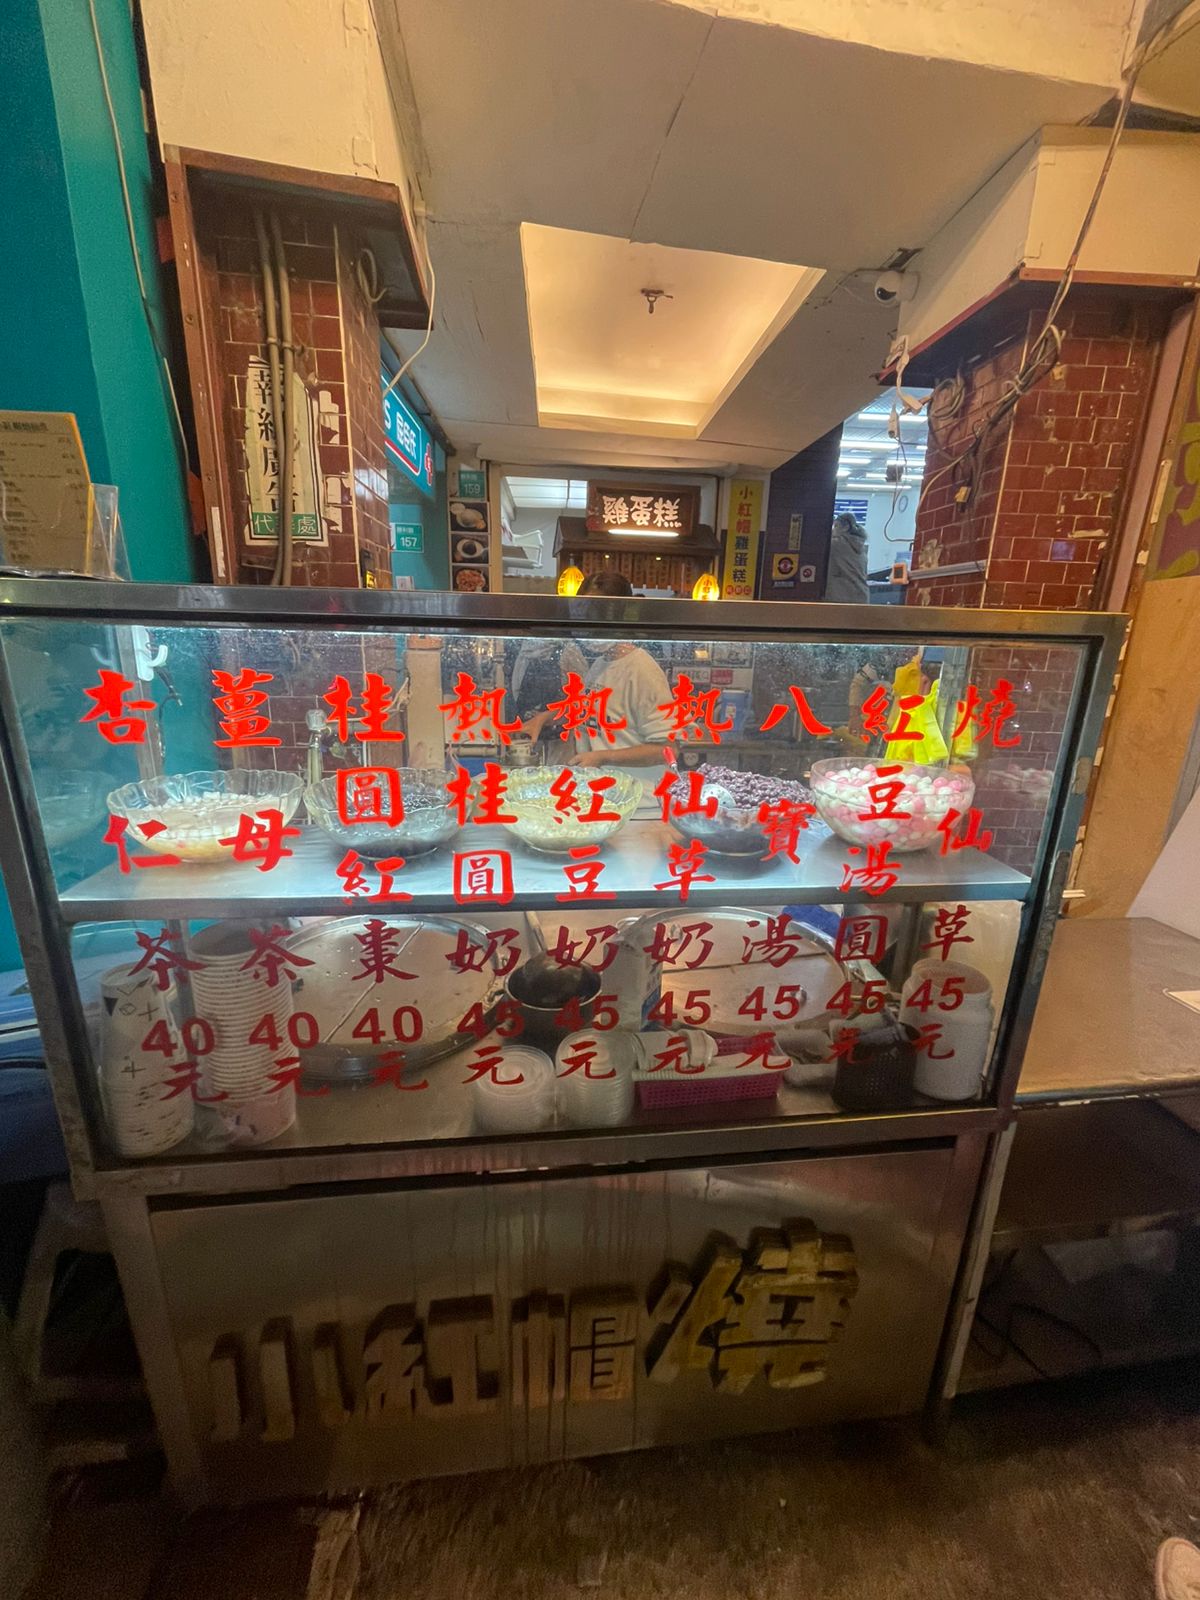 雞蛋糕
小紅帽雞蛋糕
159
157
代 處
杏仁茶40元
薑母茶40元
桂圓紅棗40元
熱桂圓奶45元
熱紅豆奶45元
熱仙草奶45元
八寶湯45元
紅豆湯圓45元
燒仙草45元
小紅帽燒